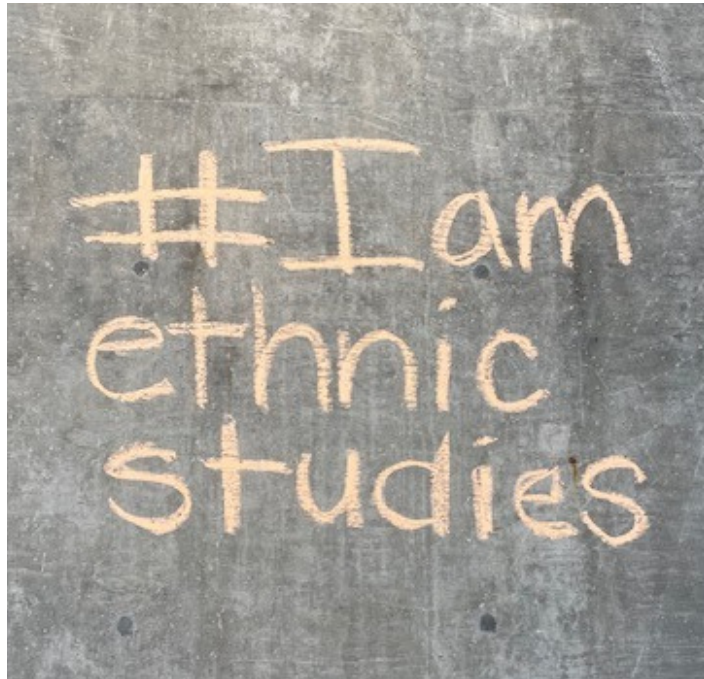 #I am
ethnic
studies